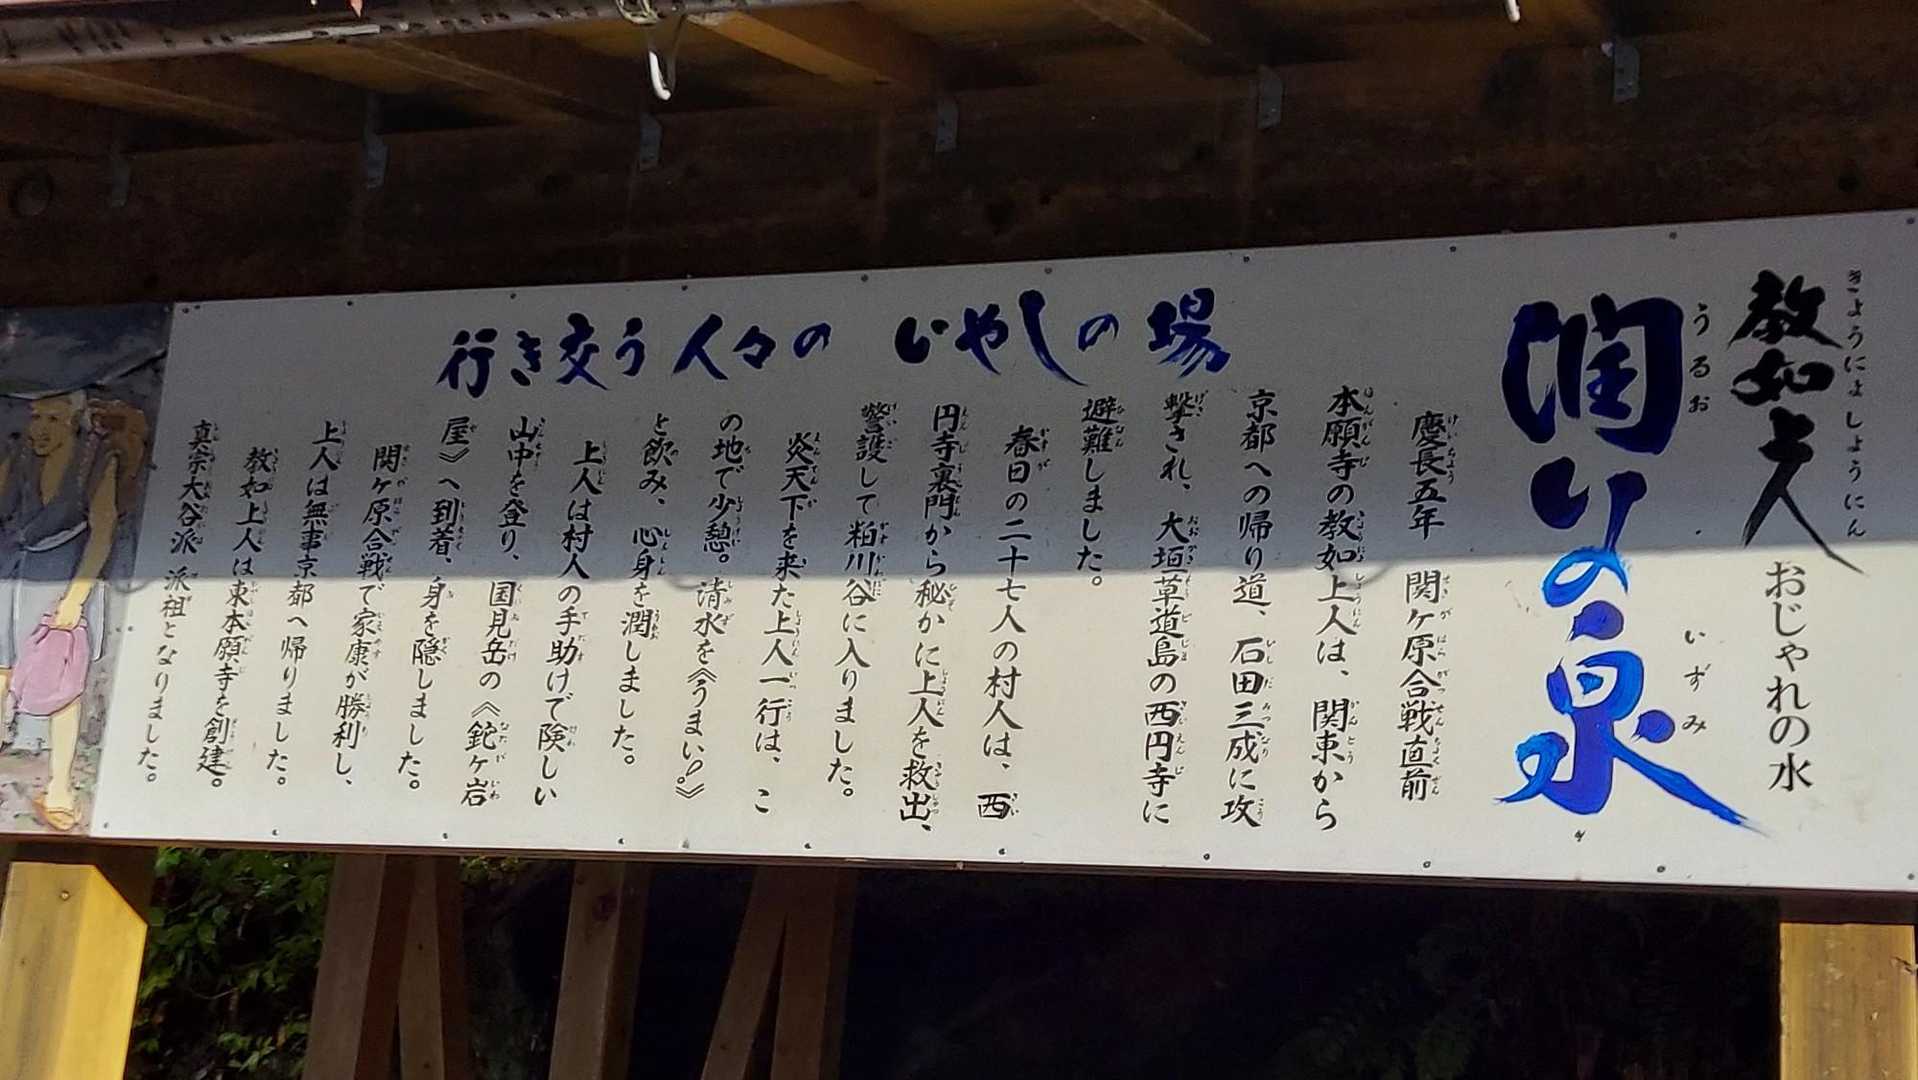 教如上人 おじゃれの水
きょうにょしょうにん
潤いの泉
うるお いずみ
行き交う人々の いやしの場
慶長五年 関ヶ原合戦直前
本願寺の教如上人は、関東から
京都への帰り道、石田三成に攻
撃され、大垣草道島の西円寺に
避難しました。
春日の二十七人の村人は、西
円寺裏門から秘かに上人を救出、
警護して粕川谷に入りました。
炎天下を来た上人一行は、こ
の地で少憩。清水を《うまい!》
と飲み、心身を潤しました。
上人は村人の手助けで険しい
山中を登り、国見岳の《鉈ヶ岩
屋》へ到着、身を隠しました。
関ヶ原合戦で家康が勝利し、
上人は無事京都へ帰りました。
教如上人は東本願寺を創建。
真宗大谷派 派祖となりました。